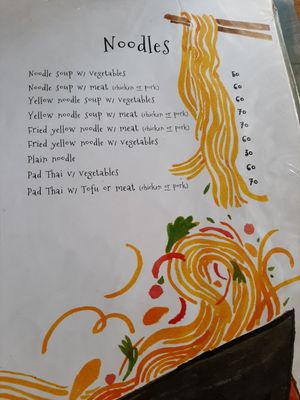 Noodles
Noodle soup w/ vegetables 50
Noodle soup w/ meat (chicken or pork) 60
Yellow noodle soup w/ vegetables 60
Yellow noodle soup w/ meat (chicken or pork) 70
Fried yellow noodle w/ meat (chicken or pork) 70
Fried yellow noodle w/ vegetables 60
Plain noodle 30
Pad Thai v/ vegetables 60
Pad Thai w/ Tofu or meat (chicken or pork) 70